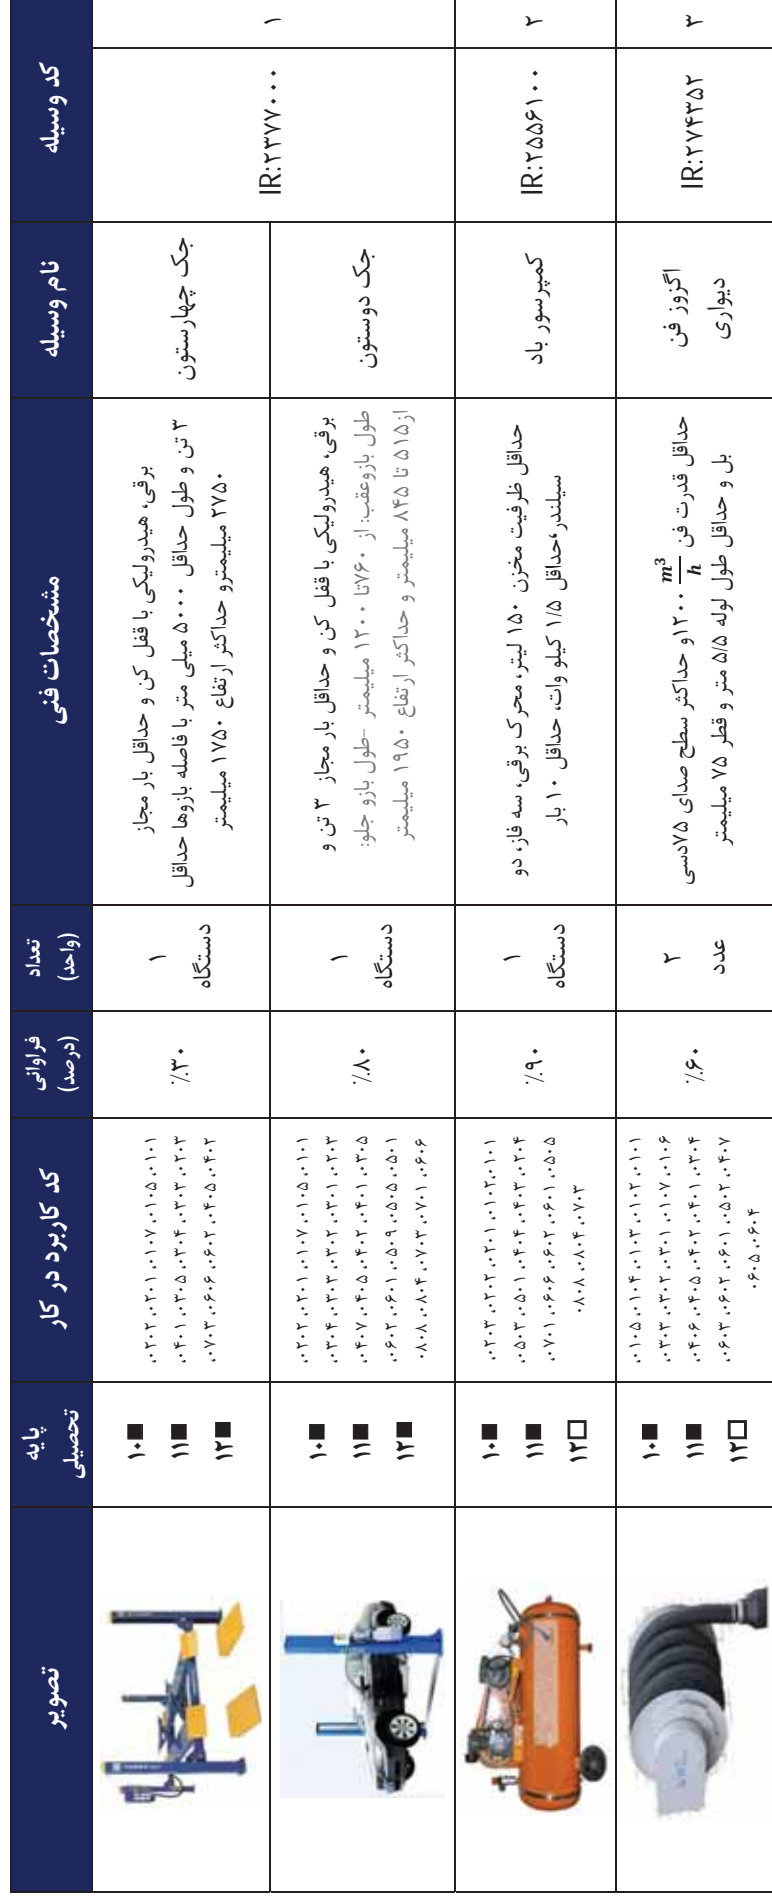 کد وسیله
نام وسیله
مشخصات فنی
تعداد
(واحد)
فراوانی
(درصد)
کد کاربرد در کار
پایه
تحصیلی
تصویر
۱
IR:۲۳۷۷۰۰۰
جک چهارستون
برقی، هیدرولیکی با قفل کن و حداقل بار مجاز
۳ تن و طول حداقل ۵۰۰۰ میلی متر با فاصله بازوها حداقل
۲۷۵۰ میلیمترو حداکثر ارتفاع ۱۷۵۰ میلیمتر
۱
دستگاه
٪۳۰
۰۲۰۲، ۰۲۰۱، ۰۱۰۷، ۰۱۰۵، ۰۱۰۱،
۰۴۰۱، ۰۳۰۵، ۰۳۰۴، ۰۳۰۳، ۰۲۰۳،
۰۷۰۳، ۰۶۰۶، ۰۶۰۲، ۰۴۰۵، ۰۴۰۲،
۱۰■
۱۱■
۱۲■
جک دوستون
برقی، هیدرولیکی با قفل کن و حداقل بار مجاز ۳ تن و
طول بازوعقب: از ۷۶۰تا ۱۲۰۰ میلیمتر -طول بازو جلو:
از۵۱۵ تا ۸۴۵ میلیمتر و حداکثر ارتفاع ۱۹۵۰ میلیمتر
۱
دستگاه
٪۸۰
۰۲۰۲، ۰۲۰۱، ۰۱۰۷، ۰۱۰۵، ۰۱۰۱،
۰۳۰۴، ۰۳۰۳، ۰۳۰۲، ۰۳۰۱، ۰۲۰۳،
۰۴۰۷، ۰۴۰۵، ۰۴۰۲، ۰۴۰۱، ۰۳۰۵،
۰۶۰۲، ۰۶۰۱، ۰۵۰۹، ۰۵۰۵، ۰۵۰۱،
۰۸۰۸، ۰۸۰۴، ۰۷۰۳، ۰۷۰۱، ۰۶۰۶
۱۰■
۱۱■
۱۲■
۲
IR:۲۵۵۶۱۰۰
کمپرسور باد
حداقل ظرفیت مخزن ۱۵۰ لیتر، محرک برقی، سه فاز، دو
سیلندر،حداقل ۱/۵ کیلو وات، حداقل ۱۰ بار
۱
دستگاه
٪۹۰
۰۲۰۳، ۰۲۰۲، ۰۲۰۱، ۰۱۰۲، ۰۱۰۱،
۰۵۰۳، ۰۵۰۱، ۰۴۰۴، ۰۴۰۳، ۰۲۰۴،
۰۷۰۱، ۰۶۰۶، ۰۶۰۲، ۰۶۰۱، ۰۵۰۵،
۰۸۰۸، ۰۸۰۴، ۰۷۰۳
۱۰■
۱۱■
۱۲□
۳
IR:۲۷۴۳۵۲
اگزوز فن
دیواری
حداقل قدرت فن m³/h ۱۲۰۰و حداکثر سطح صدای ۷۵دسی
بل و حداقل طول لوله ۵/۵ متر و قطر ۷۵ میلیمتر
۲
عدد
٪۶۰
۰۱۰۵، ۰۱۰۴، ۰۱۰۳، ۰۱۰۲، ۰۱۰۱،
۰۳۰۳، ۰۳۰۲، ۰۳۰۱، ۰۱۰۷، ۰۱۰۶،
۰۴۰۶، ۰۴۰۵، ۰۴۰۲، ۰۴۰۱، ۰۳۰۴،
۰۶۰۳، ۰۶۰۲، ۰۶۰۱، ۰۵۰۲، ۰۴۰۷،
۰۶۰۵، ۰۶۰۴
۱۰■
۱۱■
۱۲□